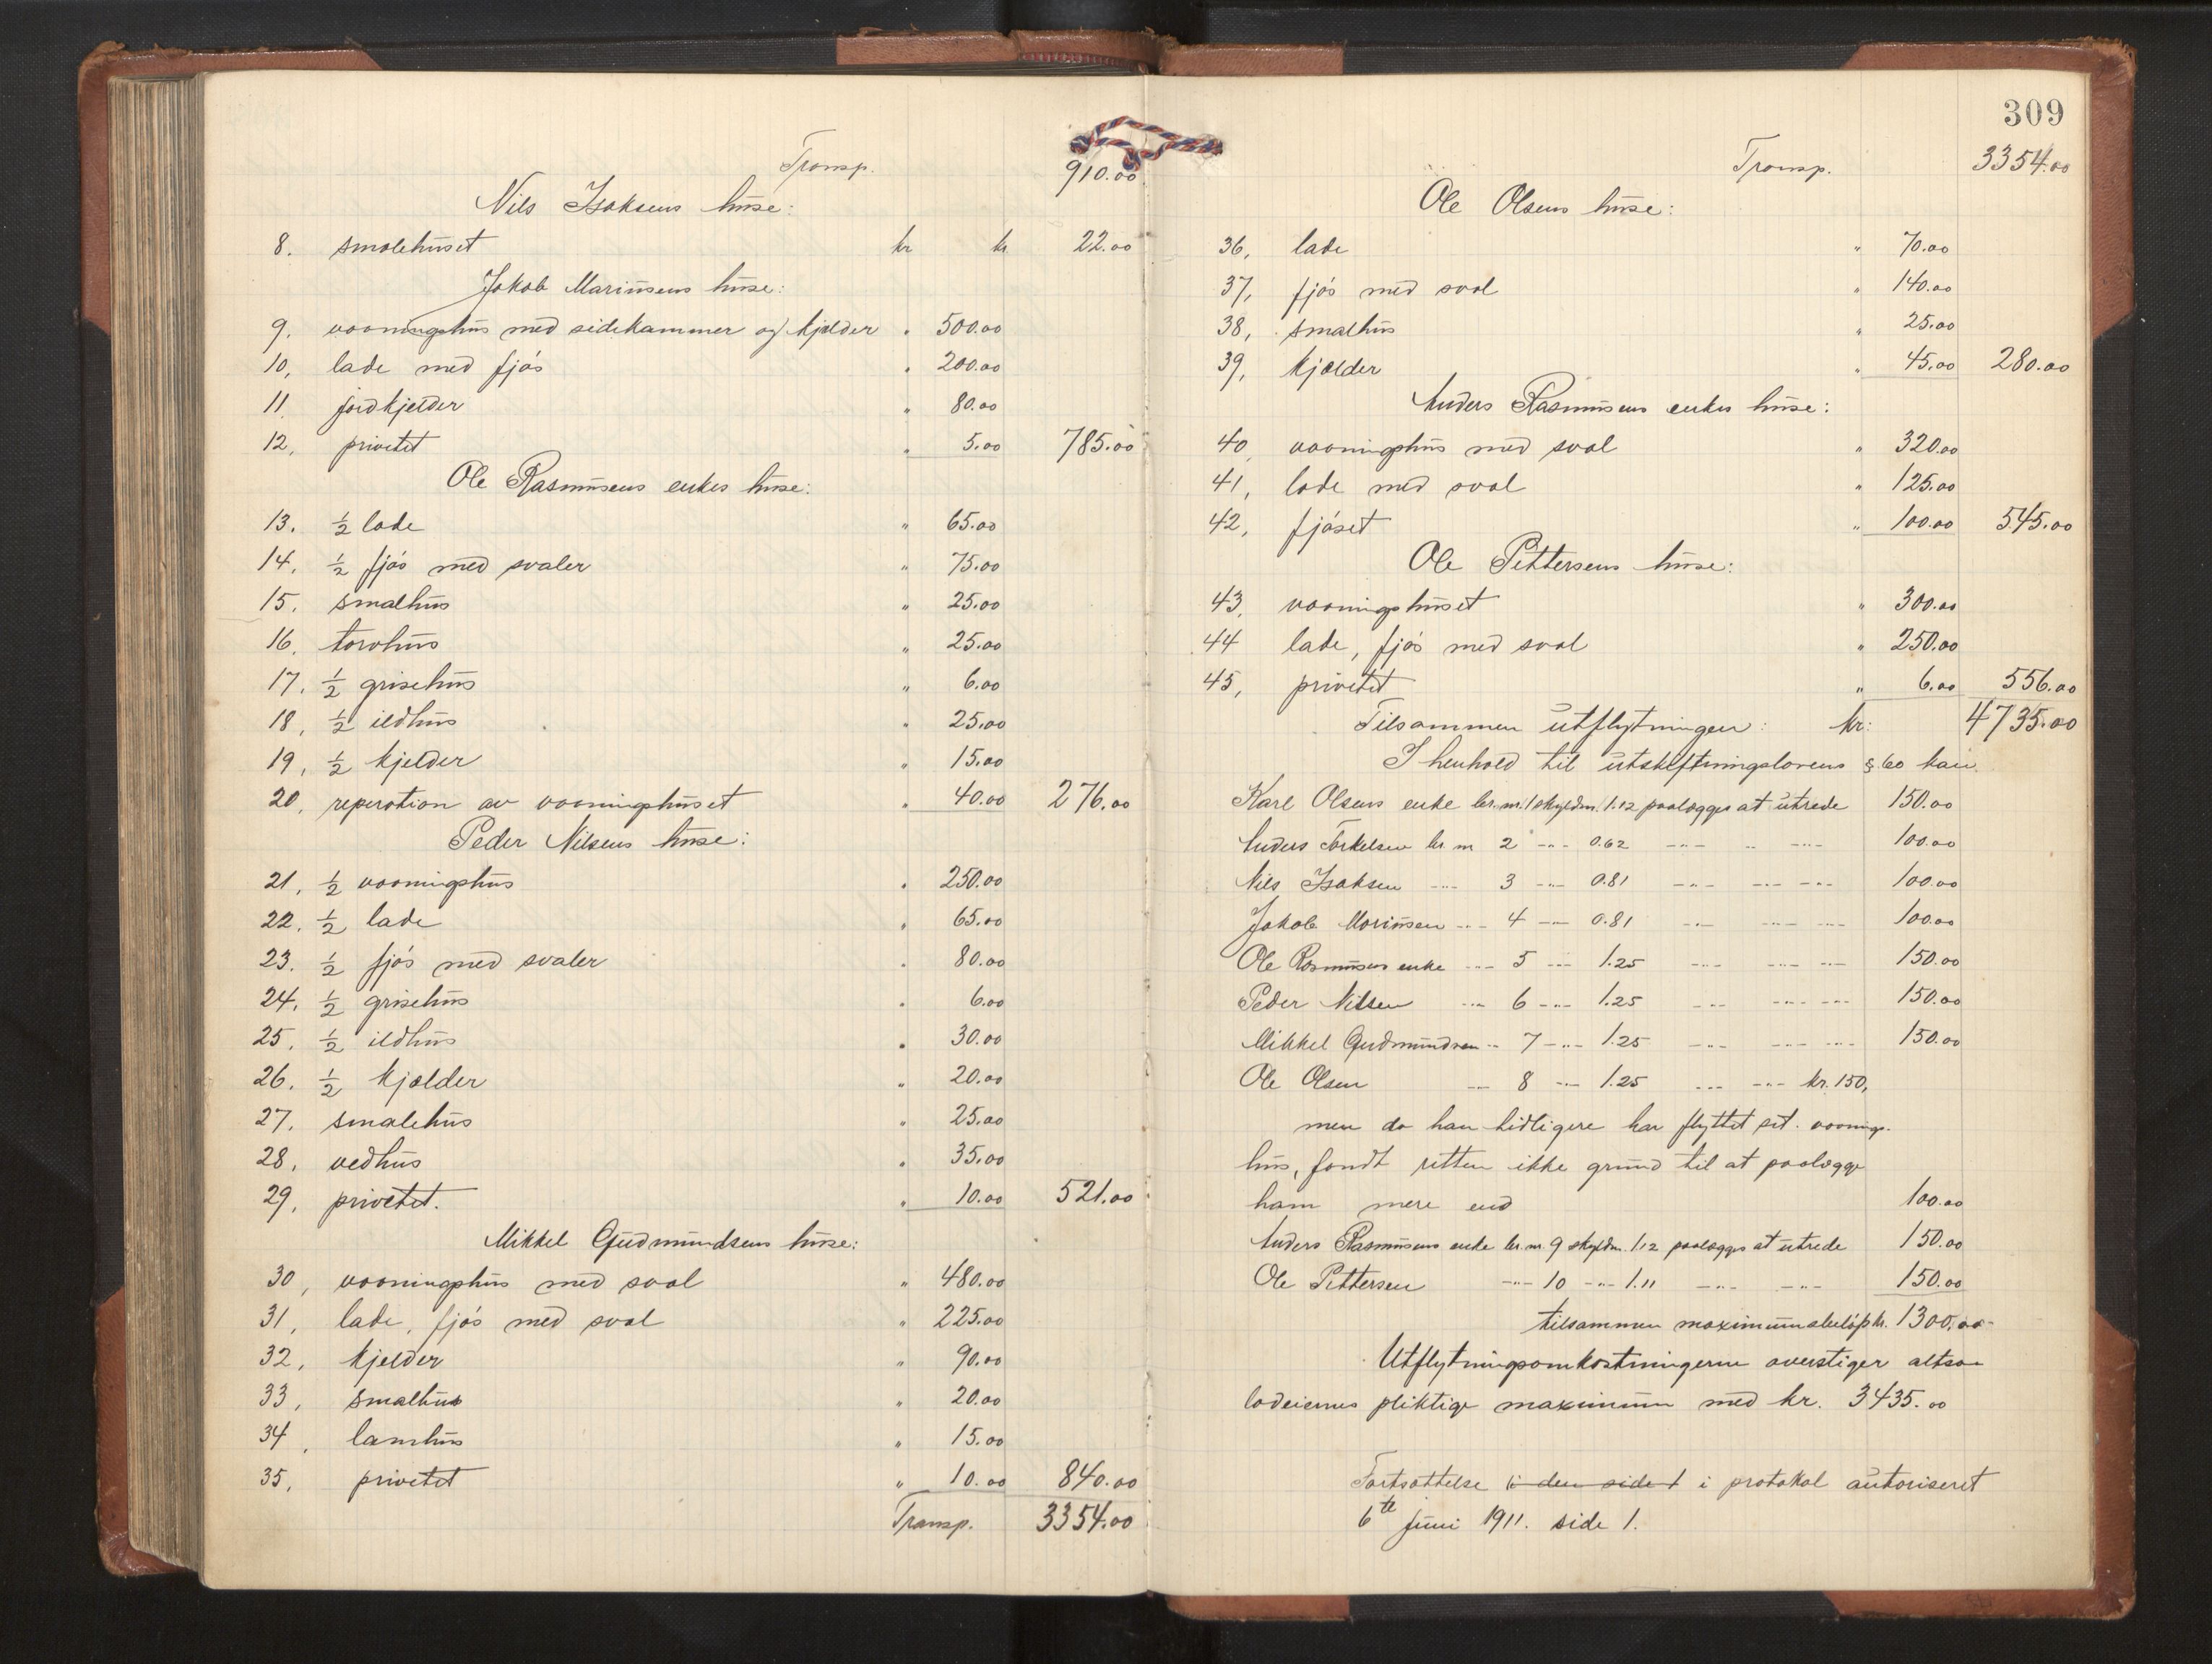 Transp. 910.00
Nils Isaksens huse:
8. smalehuset kr kr. 22.00
Jakob Mariusens huse:
9. vaaningshus med sidekammer og kjelder " 500.00
10, lade med fjøs " 200.00
11 jordkjelder " 80.00
12, privetet " 5.00 785.00
Ole Rasmusens enkes huse:
13. ½ lade " 65.00
14. ½ fjøs med svaler " 75.00
15. smalhus " 25.00
16. torvhus " 25.00
17. ½ grisehus " 6.00
18, ½ ildhus " 25.00
19, ½ kjelder " 15.00
20, reperation av vaaningshuset " 40.00 276.00
Peder Nilsens huse:
21, ½ vaaningshus " 250.00
22. ½ lade " 65.00
23. ½ fjøs med svaler " 80.00
24. ½ grisehus " 6.00
25. ½ ildhus " 30.00
26. ½ kjælder " 20.00
27. smalehus " 25.00
28, vedhus " 35.00
29, privetet. " 10.00 521.00
Mikkel Gudmundsens huse:
30, vaaningshus med sval " 480.00
31, lade, fjøs med sval " 225.00
32, kjelder " 90.00
33, smalhus " 20.00
34, lamhus " 15.00
35, privetet " 10.00 840.00
Transp. 3354.00
309
Transp. 3354.00
Ole Olsens huse:
36, lade " 70.00
37, fjøs med sval " 140.00
38, smalhus " 25.00
39, kjælder " 45.00 280.00
Anders Rasmusens enkes huse:
40, vaaningshus med sval " 320.00
41, lade med sval " 125.00
42, fjøset " 100.00 545.00
Ole Pettersens huse:
43, vaaningshuset " 300.00
44 lade, fjøs med sval " 250.00
45, privetet " 6.00 556.00
Tilsammen utflytningen: kr: 4735.00
I henhold til utskiftningslovens § 60 kan
Karl Olsens enke br. nr. 1 skyldm. 1.12 paalægges at utrede 150.00
Anders Torkelsen br. nr 2 -"- 0.62 -"- " -"- 100.00
Nils Isaksen -"- 3 -"- 0.81 -"- -"- -"- 100.00
Jakob Mariusen -"- 4 -"- 0.81 -"- -"- -"- 100.00
Ole Rasmusens enke -"- 5 -"- 1.25 -"- -"- -"- 150.00
Peder Nilsen -"- 6 -"- 1.25 -"- -"- -"- 150.00
Mikkel Gudmundsen -"- 7 -"- 1.25 -"- -"- -"- 150.00
Ole Olsen -"- 8 -"- 1.25 -"- -"- kr. 150,
men da han tidligere har flyttet sit vaanings-
hus, fandt retten ikke grund til at paalægge
ham mere end 100.00
Anders Rasmusens enke br. nr. 9 skyldm. 1.12 paalægges at utrede 150.00
Ole Pettersen -"- 10 -"- 1.11 -"- -"- 150.00
tilsammen maximumsbeløp kr. 1300.00-
Utflytningsomkostningerne overstiger altsaa
lodeiernes pliktige maximum med kr. 3435.00
Fortsættelse i den side 1 i protokol autoriseret
6te juni 1911. side 1.